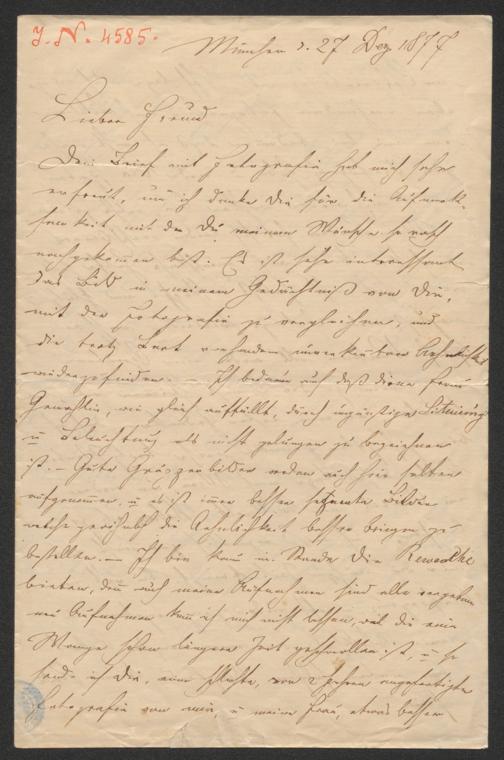 J. N. 4585.
München d. 27 Dez 1877
Lieber Freund
Dein Brief mit Fotografie hat mich sehr
erfreut, und ich danke Dir für die Aufmerk-
samkeit mit der Du meinem Wunsche so rasch
nachgekommen bist. Es ist sehr interessant
das Bild in meinem Gedächtniß von Dir,
mit der Fotografie zu vergleichen, und
die trotz Bart verkennbare Aehnlichkeit
wiederzufinden. – Ich bedaure auch daß Deine Frau
Gemahlin, wie gleich auffällt, durch ungünstige Situirung
u Beleuchtung als nicht gelungen zu bezeichnen
ist. – Gute Gruppenbilder werden auch hier selten
aufgenommen, u es ist immer besser separate Bilder
welche gewöhnlich die Aehnlichkeit besser bringen zu
bestellen. – Ich bin kaum im Stande Dir Revanche
bieten, denn auch meine Aufnahmen sind alle vergeben
neue Aufnahmen kann ich mich nicht lassen, weil die eine
Wange schon längere Zeit geschwollen ist, u so
sende ich Dir, eine schlechte, vor 2 Jahren angefertigte
Fotografie von mir, u meine Frau, etwas besser